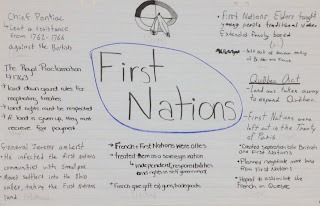 Chief Pontiac
- Lead a resistance
from 1763-1766
against the British
The Royal Proclamation
of 1763
land down ground rules for
negotiating treaties
land rights must be respected
if land is given up, they must
receive fair payment
General Jeffrey amherst
He infected the first nations
communities with Smallpox
Moved settlers into the Ohio
valley, taking the First Nations
land
First
Nations
French & First Nations were allies
treated them as a sovereign nation
independent, responsibilities
and rights is self government
French gave gifts of guns, trading posts
- First Nations Elders taught
young people traditional values
Extended family based
Quebec Act
- Land was taken away
to expand Quebec
- First Nations were
left out in the Treaty
of Paris
- Created separation btw British
and First Nations
- Planned negotiate were land
from First Nations
- Hoped to assimilate the
French in Quebec